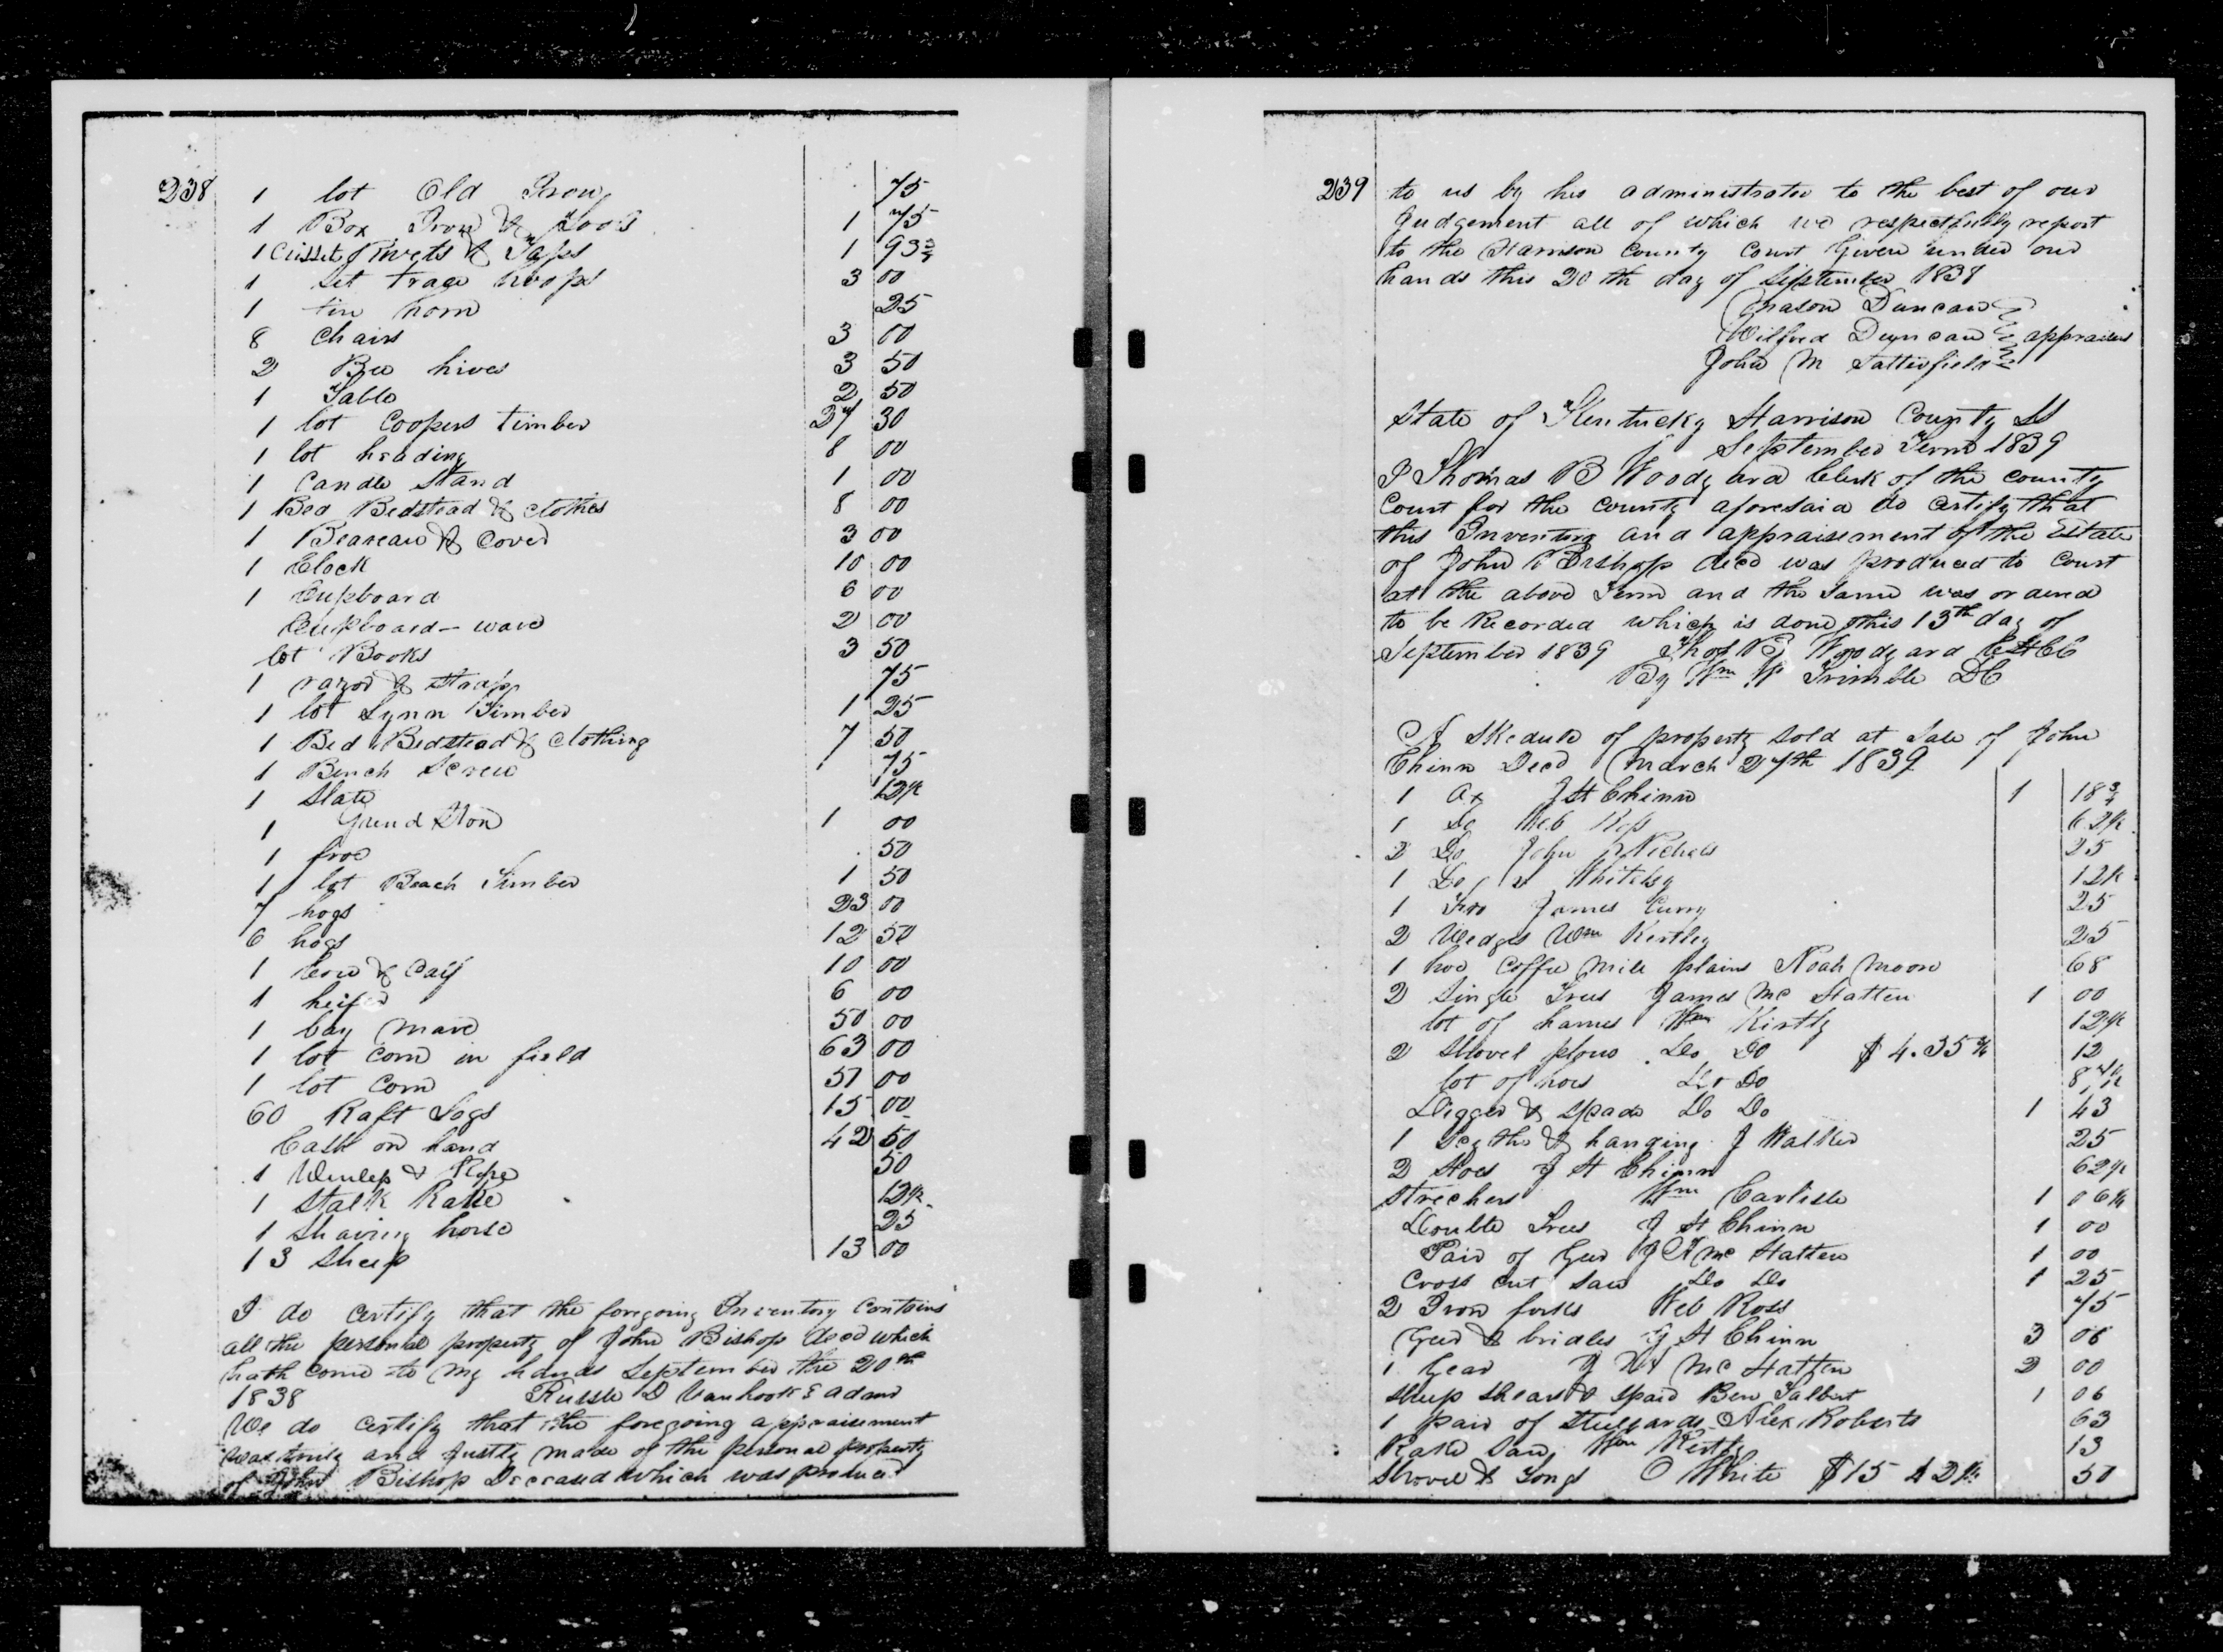 238
1 lot Old Irons 75
1 Box Irons & Tools 1 75
1 Rivets & Taps 1 93¾
1 set trage hoops 3 00
1 tin horn 25
8 Chairs 3 00
2 Bee hives 3 50
1 Table 2 50
1 lot Coopers timber 27 30
1 lot heading 8 00
1 Candle Stand 1 00
1 Bed Bedstead & clothes 8 00
1 Beareau & Cover 3 00
1 Clock 10 00
1 Cupboard 6 00
Cupboard-ware 2 00
lot Books 3 50
1 razor & strap 75
1 lot Lynn Timber 1 25
1 Bed Bedstead & clothing 7 50
1 Bench Screw 75
1 Slate 12½
1 Grind Ston 1 00
1 froe 50
1 lot Beach Timber 1 50
7 hogs 23 00
6 hogs 12 50
1 Cow & Calf 10 00
1 heifer 6 00
1 bay Mare 50 00
1 lot corn in field 63 00
1 lot Corn 51 00
60 Raft Logs 15 00
Cash on hand 42 50
1 & Rope 50
1 Stalk Rake 12½
1 Shaving horse 25
13 Sheep 13 00
I do certify that the foregoing Inventory contains
all the personal property of John Bishop decd which
hath come to my hands September the 20th
1838 Russle D Vanhook Admr
We do certify that the foregoing appraisement
was truly and Justly made of the personal property
of John Bishop Deceased which was produced
239
to us by his administrator to the best of our
Judgement all of which we respectfully report
to the Harrison County Court Given under our
hands this 20th day of September 1838
Mason Duncan
Wilford Duncan appraisers
John M Satterfield
State of Kentucky Harrison County SS
September Term 1839
I Thomas B Woodyard Clerk of the county
Court for the county aforesaid do certify that
this Inventory and appraisement of the Estate
of John Bishop decd was produced to Court
at the above Term and the same was ordered
to be Recorded which is done this 13th day of
September 1839 Thos B Woodyard
By Wm W Trimble DC
A Skedule of property sold at Sale of John
Chinn Decd March 27th 1839
1 Ax J H Chinn 1 18¾
1 Do Web Ross 62½
2 Do John Nichols 25
1 Do Whitely 12½
1 Froe James Curry 25
2 Wedges Wm Kirtley 25
1 hoe Coffee Mill plains Noah Moore 68
2 Single Trees James Mc Hatten 1 00
lot of hames Wm Kirtly 12½
2 Shovel plows Do Do $4.35¾ 12
lot of hoes Do Do
Digger & Spade Do Do 1 43
1 Scythe & hanging J Walker 25
2 Hoes J H Chinn 62½
Strechers Wm Carlisle 1 06¼
Double Trees J H Chinn 1 00
Pair of Gear J Mc Hatten 1 00
Cross cut saw Do Do 1 25
2 Iron forks Web Ross 75
Gear & bridles J H Chinn 3 06
1 Gear J Mc Hatten 2 00
Sheep Shears & Spaid Ben Talbert 1 06
1 pair of Stillyards Alex Roberts 63
Rake Saw Wm Kirtly 13
Shovel & Tongs O White $15 42¾ 50